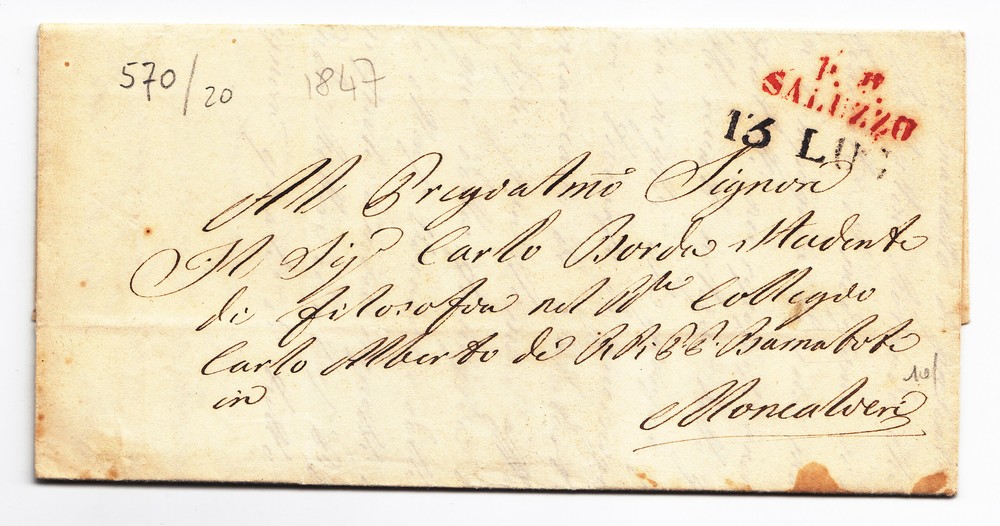 570/20
1847
P. P.
SALUZZO
13 LUG
Al Pregiatmo Signor
Il Sigr Carlo Borda Studente
di filosofia nel Rle Collegio
Carlo Alberto de RR: PP. Barnabiti
in
Moncalieri
10/